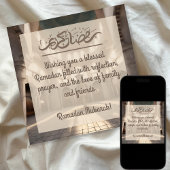 رمضان كريم
Wishing you a blessed
Ramadan filled with reflection,
prayer, and the love of family
and friends.
Ramadan Mubarak!